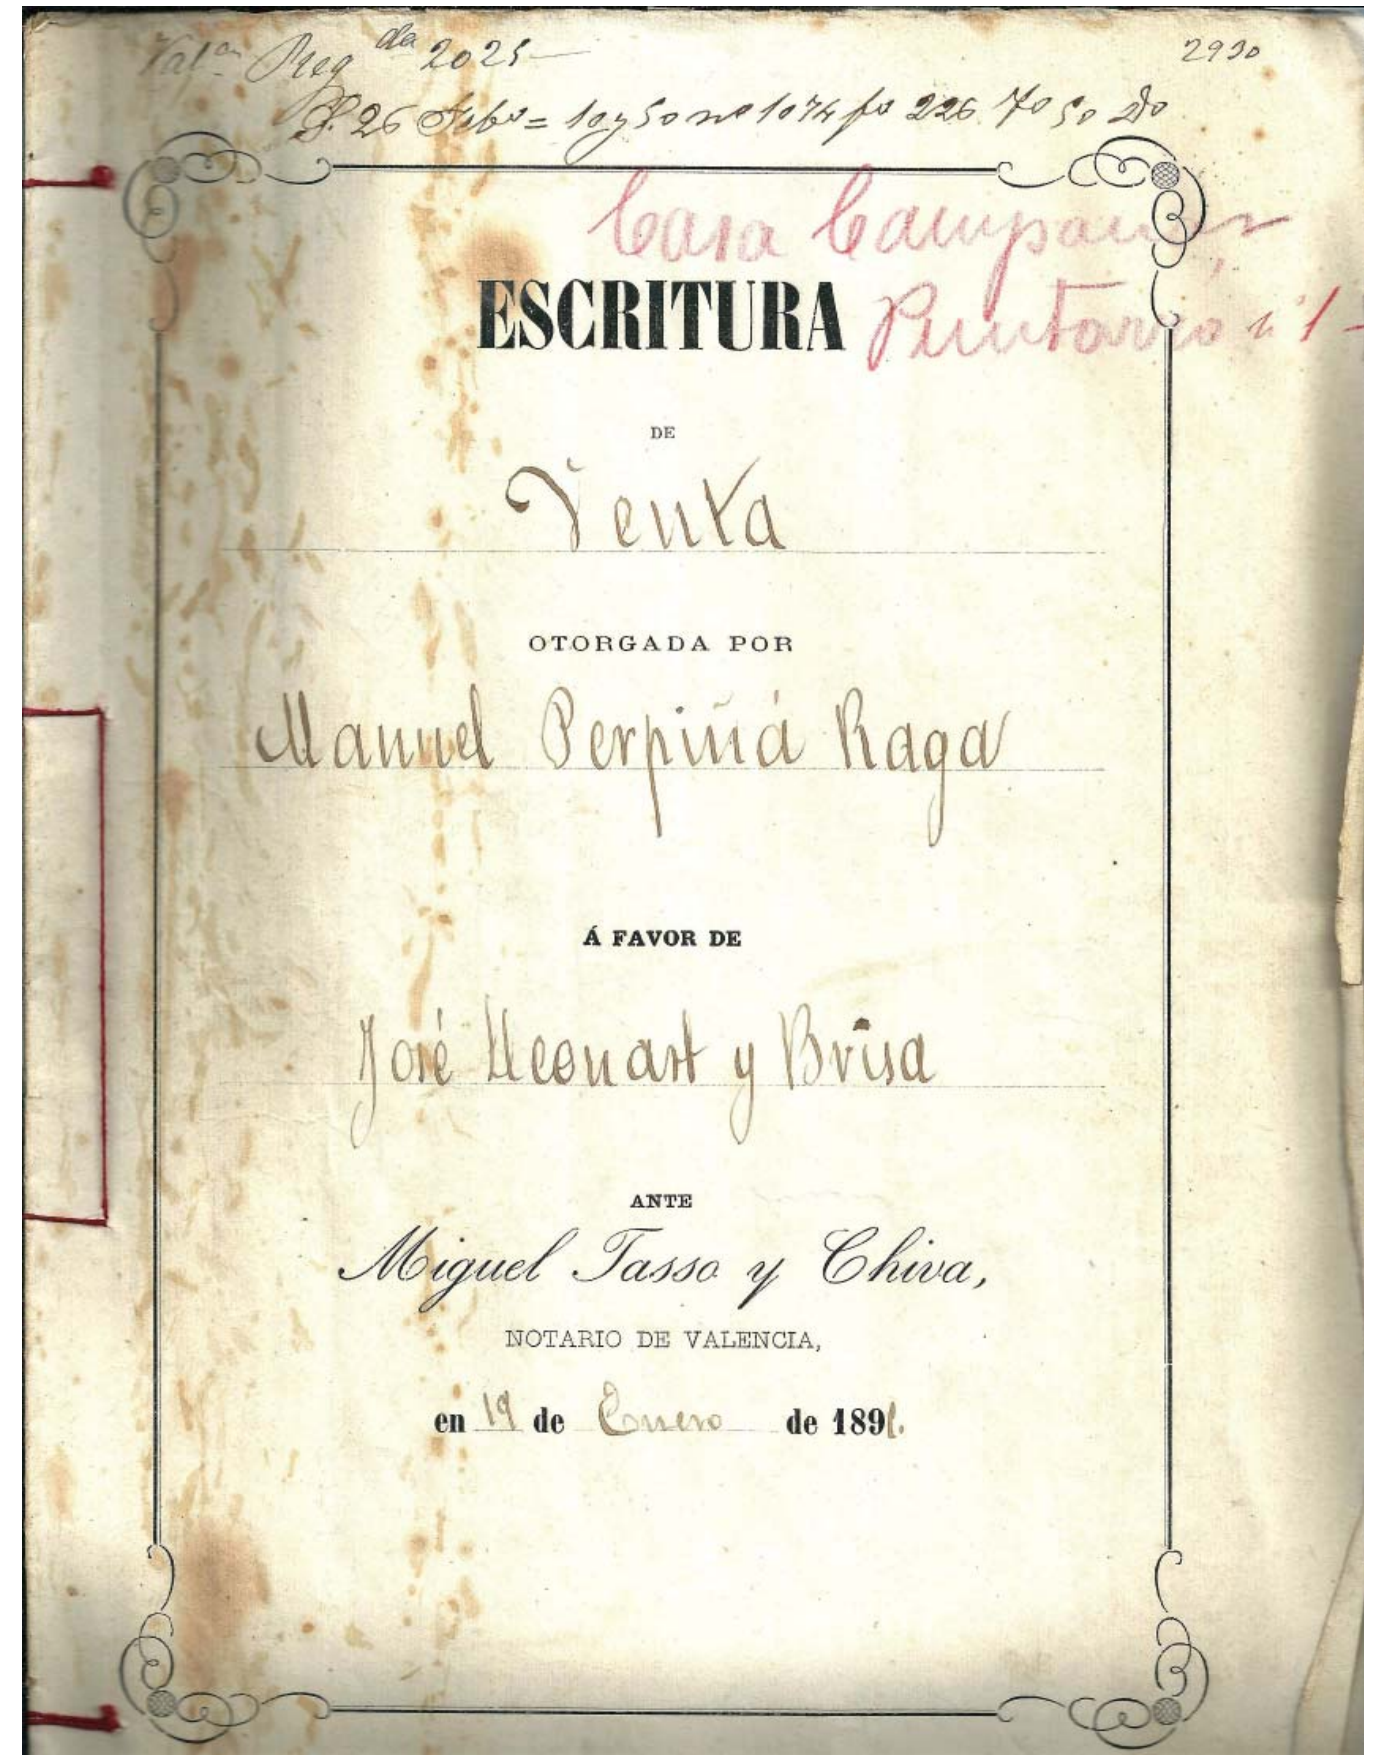 Reg da 2025
2930
26 Feb° = 10 y 50 n° 1074 f° 226
Casa Campanar
ESCRITURA
n° 1
DE
Venta
OTORGADA POR
Manuel Perpiñá Raga
Á FAVOR DE
José Lleonart y Brisa
ANTE
Miguel Tasso y Chiva,
NOTARIO DE VALENCIA,
en 19 de Enero de 1891.